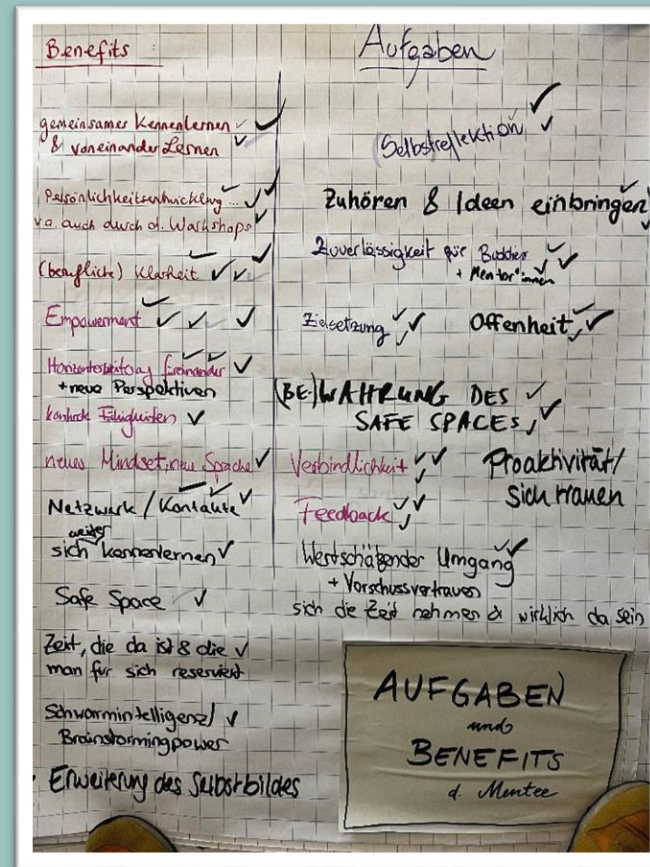 Benefits :
gemeinsames Kennenlernen
& voneinander Lernen
Persönlichkeitsentwicklung ...
v.a. auch durch d. Workshops
(berufliche) Klarheit
Empowerment
Horizonterweiterung füreinander
+ neue Perspektiven
konkrete Fähigkeiten
neues Mindset, neue Sprache
Netzwerk / Kontakte
weiter
sich kennenlernen
Safe Space
Zeit, die da ist & die
man für sich reserviert
Schwarmintelligenz /
Brainstormingpower
· Erweiterung des Selbstbildes
Aufgaben
(Selbstreflektion
Zuhören & Ideen einbringen
Zuverlässigkeit für Buddies
+ Mentor*innen
Zielsetzung
Offenheit
(BE)WAHRUNG DES
SAFE SPACES
Verbindlichkeit
Proaktivität/
sich trauen
Feedback
Wertschätzender Umgang
+ Vorschussvertrauen
sich die Zeit nehmen & wirklich da sein
AUFGABEN
und
BENEFITS
d. Mentee